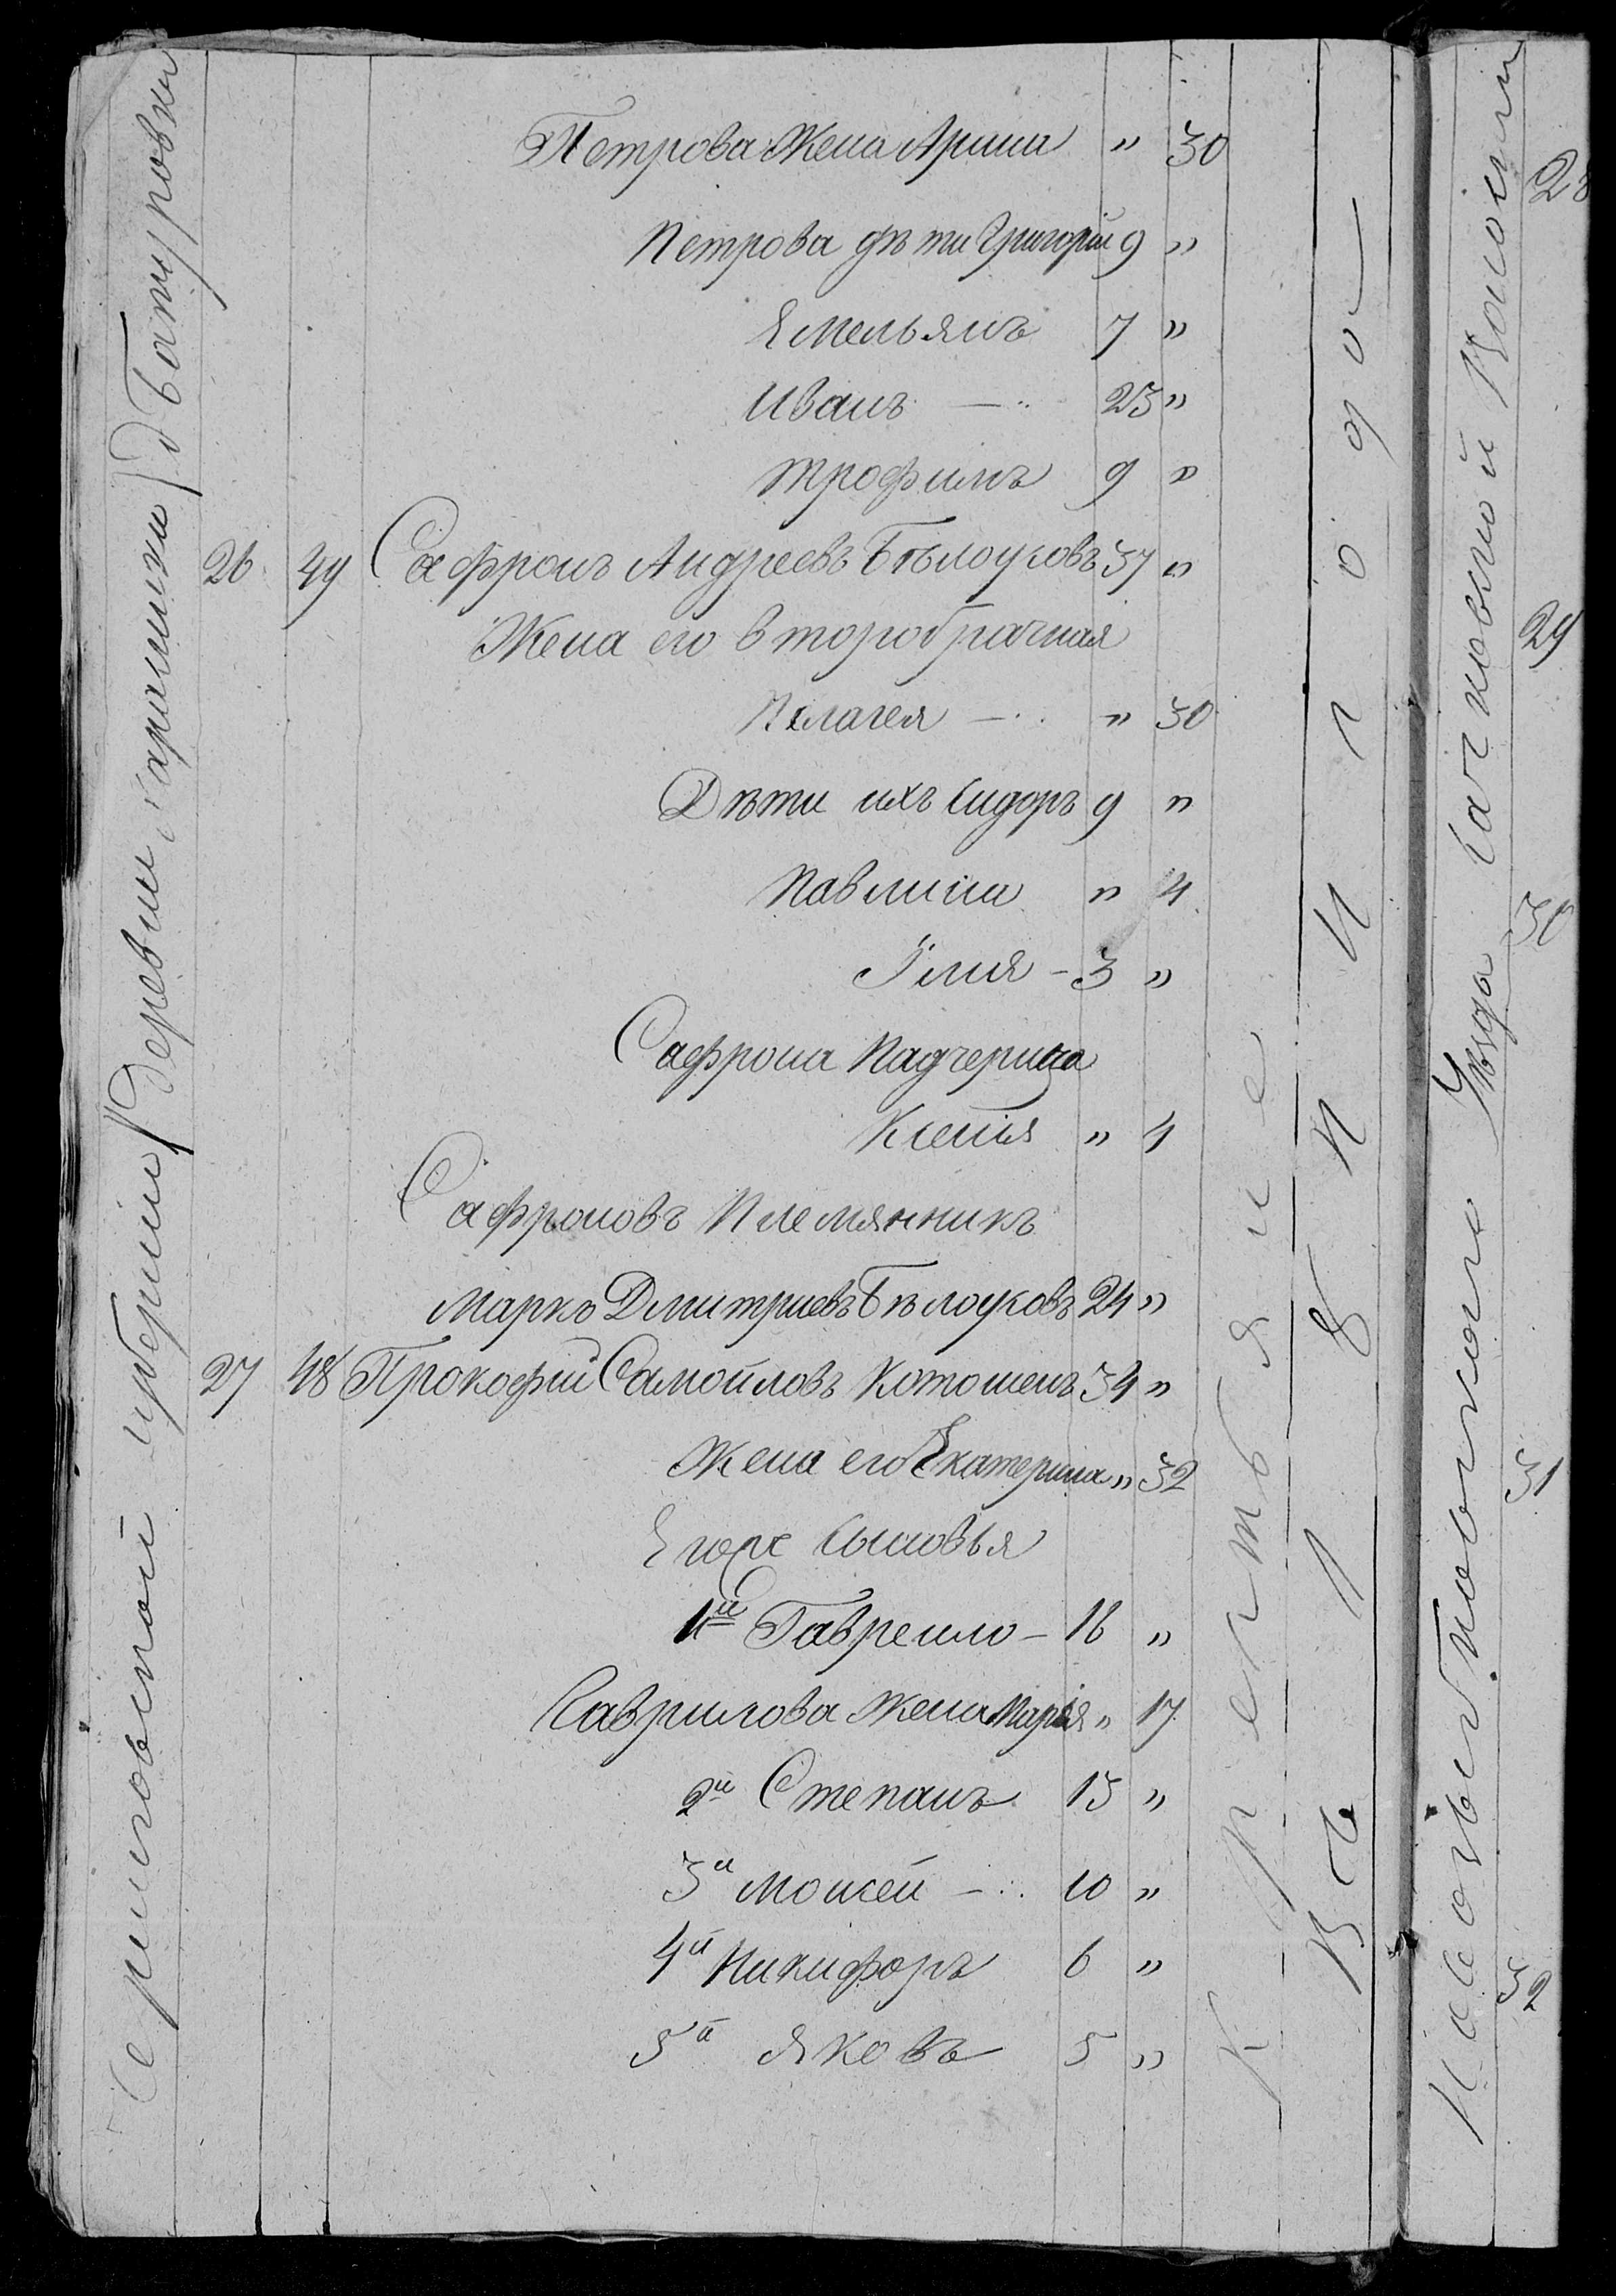 Черниговской губернии
Деревни
д Батуровки
Петрова Жена Арина " 30
Петрова дѣти Григорій 9 "
Емельянъ 7 "
Иванъ — 23 "
Трофимъ 9 "
26 49 Сафронъ Андреевъ Бѣлоусовъ 37 "
Жена его второбрачная
Пелагея — " 30
Дѣти ихъ Сидоръ 9 "
Павлина " 4
Илия – 3 "
Сафрона Падчерица
Ксенія " 4
Сафроновъ Племянникъ
Марко Дмитриевъ Бѣлоусовъ 24 "
27 48 Прокофій Самойловъ Котошенъ 34 "
Жена его Екатерина " 32
Его же Сыновья
1й Гаврило – 18 "
Гаврилова Жена Марья " 17
2й Степанъ 13 "
3й Мойсей – 10 "
4й Никифоръ 6 "
5й Яковъ 5 "
Крестьяне
Уѣзда
28
29
30
31
32